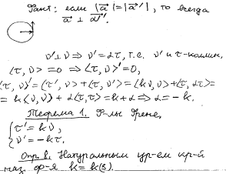 Факт: если |a⃗|=|a⃗'|, то всегда
a⃗ ⊥ a⃗'.
ν'⊥ν ⇒ ν'=ατ, т.е. ν' и τ - коллин.
⟨τ, ν⟩ = 0 ⇒ ⟨τ, ν⟩' = 0,
⟨τ, ν⟩' = ⟨τ', ν⟩ + ⟨τ, ν'⟩ = ⟨kν, ν⟩ + ⟨τ, ατ⟩ =
= k⟨ν, ν⟩ + α⟨τ, τ⟩ = k + α ⇒ α = -k.
Теорема 1. Ф-лы Френе.
{ τ' = kν,
ν' = -kτ.
Опр 1. Натуральным ур-ем кр-й
наз. ф-я k = k(s).